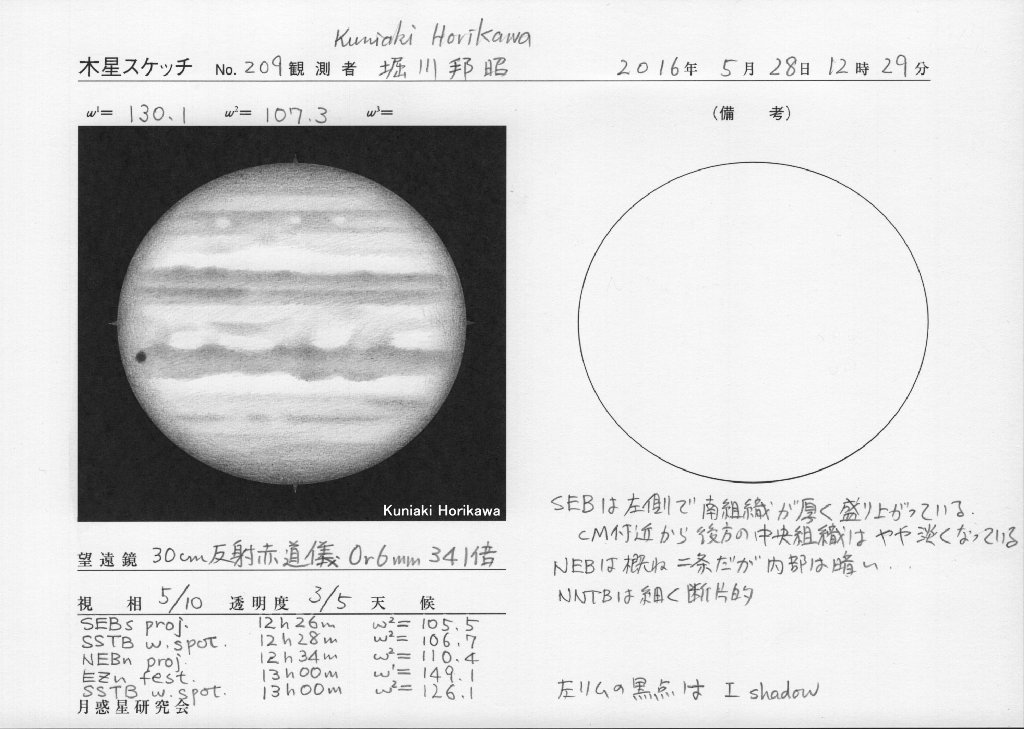 Kuniaki Horikawa
木星スケッチ No. 209 観測者 堀川邦昭 2016年 5月 28日 12時 29分
ω¹= 130.1 ω²= 107.3 ω³=
(備 考)
Kuniaki Horikawa
SEBは左側で南組織が厚く盛り上がっている.
CM付近から後方の中央組織はやや淡くなっている
NEBは概ね二条だが内部は暗い...
NNTBは細く断片的
望遠鏡 30cm反射赤道儀 Or6mm 341倍
視 相 5/10 透明度 3/5 天 候
SEBs proj. 12h26m ω²= 105.5
SSTB w.spot. 12h28m ω²= 106.7
NEBn proj. 12h34m ω²= 110.4
EZn fest. 13h00m ω¹= 149.1
SSTB w.spot. 13h00m ω²= 126.1
月惑星研究会
左リムの黒点は I shadow